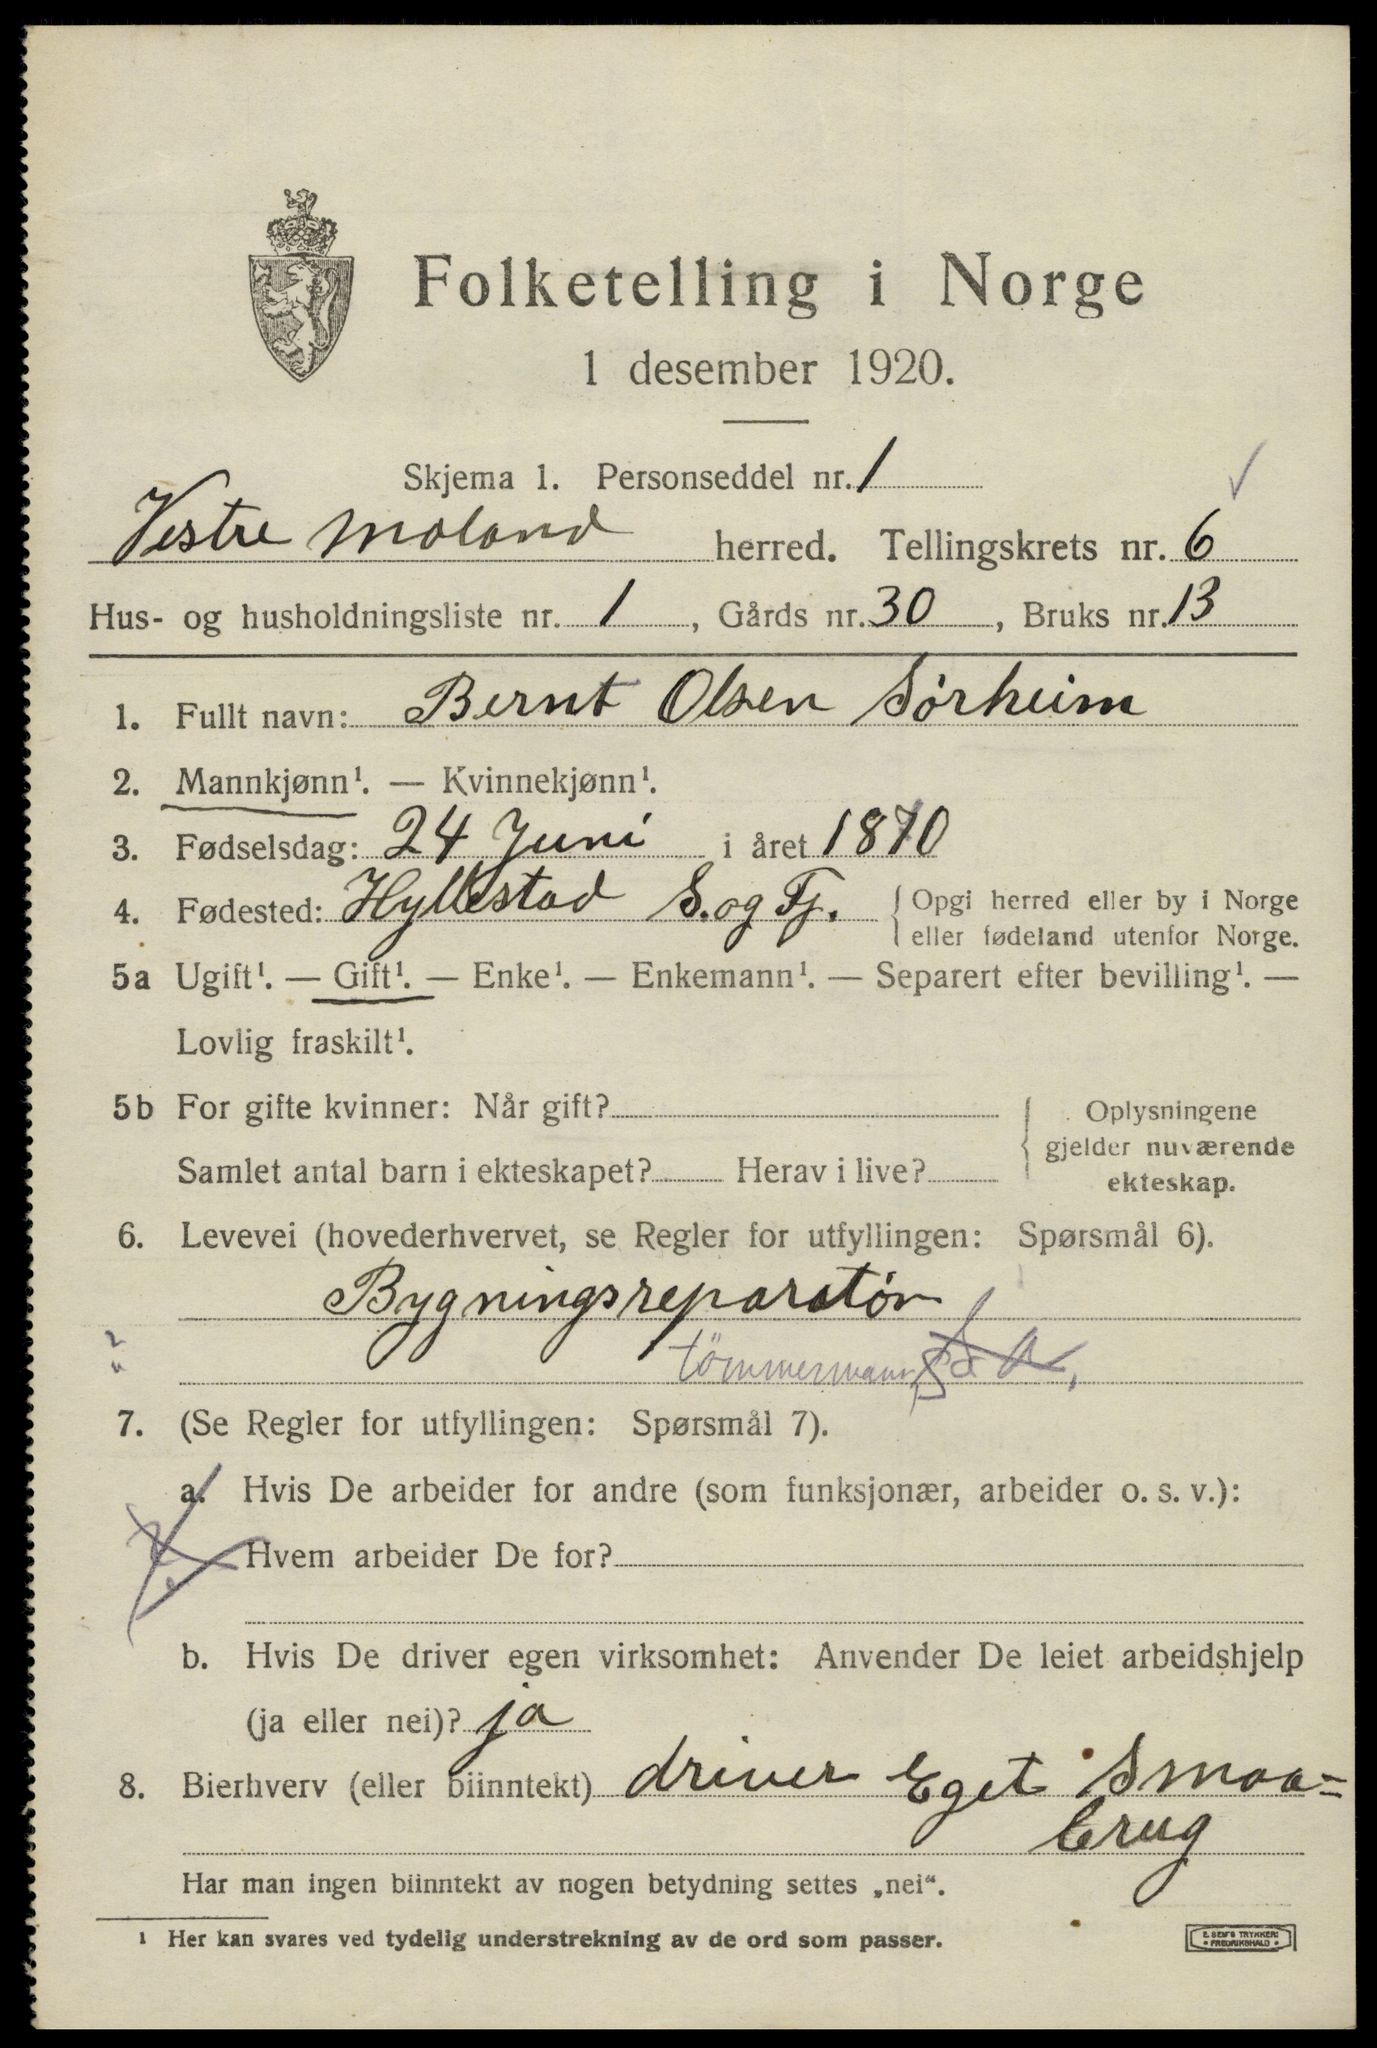 Folketelling i Norge
1 desember 1920.
Skjema 1. Personseddel nr. 1
Vestre Moland herred. Tellingskrets nr. 6
Hus- og husholdningsliste nr. 1, Gårds nr. 30, Bruks nr. 13
1. Fullt navn: Bernt Olsen Sørheim
2. Mannkjønn¹. — Kvinnekjønn¹.
3. Fødselsdag: 24 Juni i året 1870
4. Fødested: Hyllestad S. og Fj. Opgi herred eller by i Norge
eller fødeland utenfor Norge.
5a Ugift¹. — Gift¹. — Enke¹. — Enkemann¹. — Separert efter bevilling¹. —
Lovlig fraskilt¹.
5b For gifte kvinner: Når gift?
Samlet antal barn i ekteskapet? Herav i live?
Oplysningene
gjelder nuværende
ekteskap.
6. Levevei (hovederhvervet, se Regler for utfyllingen: Spørsmål 6).
Bygningsreparatør
tömmermann,
7. (Se Regler for utfyllingen: Spørsmål 7).
a. Hvis De arbeider for andre (som funksjonær, arbeider o. s. v.):
Hvem arbeider De for?
b. Hvis De driver egen virksomhet: Anvender De leiet arbeidshjelp
(ja eller nei)? ja
8. Bierhverv (eller biinntekt) driver Eget Smaa=
brug
Har man ingen biinntekt av nogen betydning settes „nei“.
¹ Her kan svares ved tydelig understrekning av de ord som passer.
E. SEM'S TRYKKERI
FREDRIKSHALD